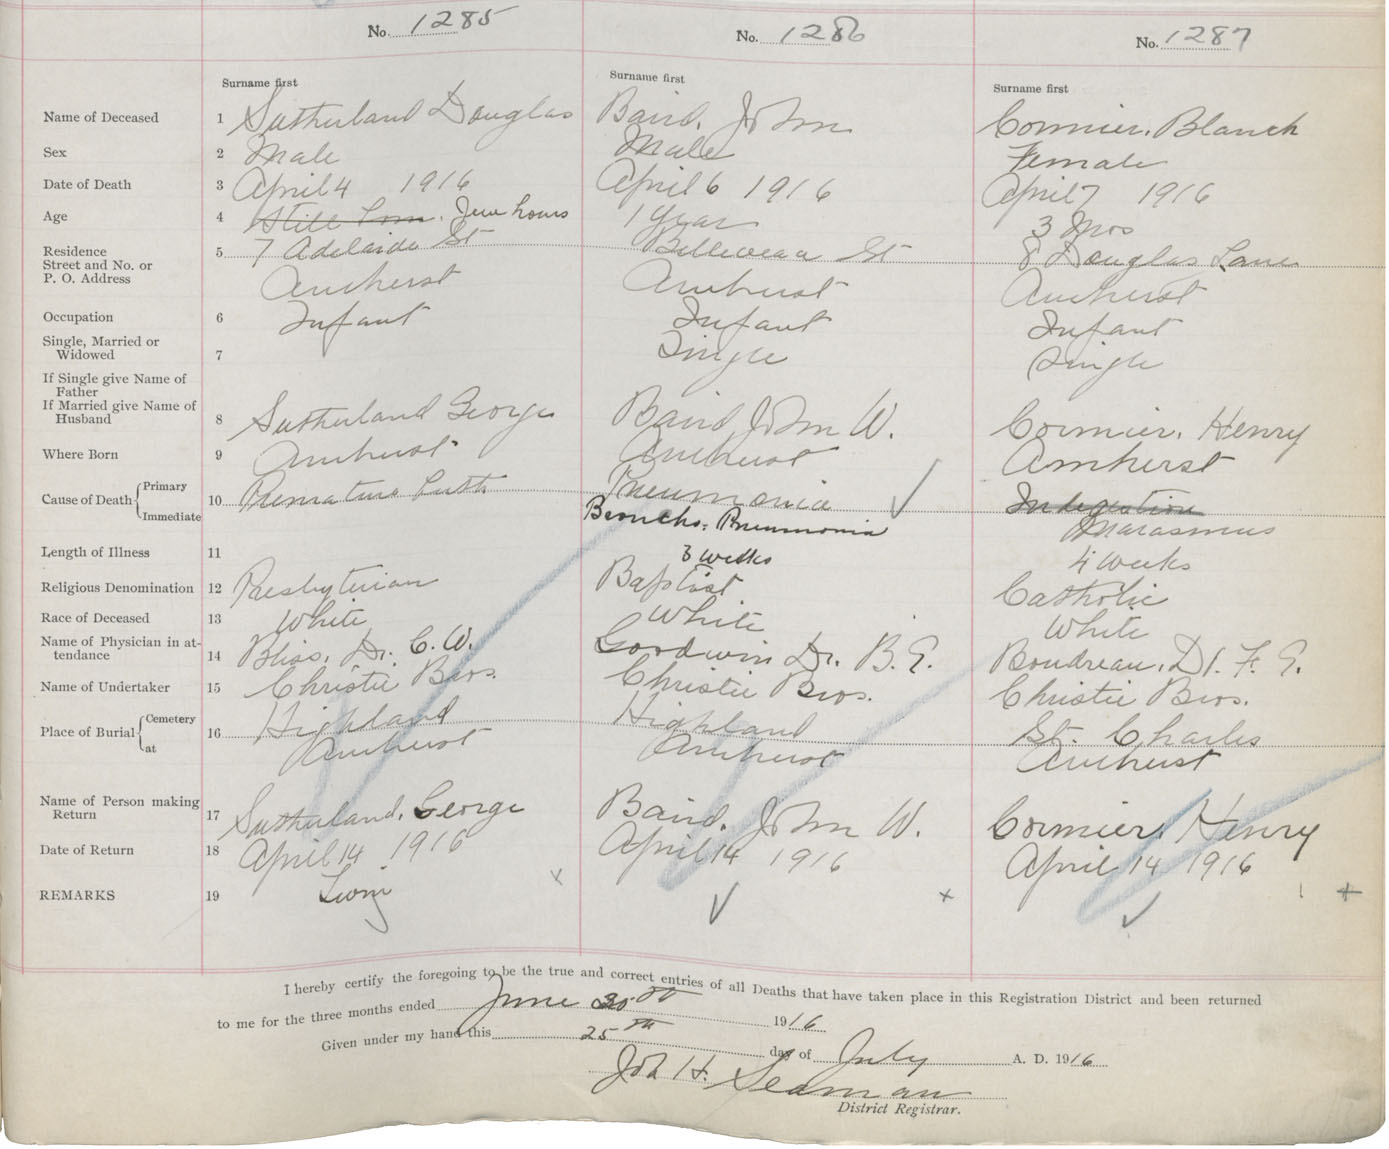 No. 1285 No. 1286 No. 1287
Surname first Surname first Surname first
Name of Deceased 1 Sutherland Douglas Baird, John Cormier, Blanch
Sex 2 Male Male Female
Date of Death 3 April 4 1916 April 6 1916 April 7 1916
Age 4 Still born. Few hours 1 year 3 Mos
Residence
Street and No. or 5 7 Adelaide St Belleveaa St 8 Douglas Lane
P. O. Address Amherst Amherst Amherst
Occupation 6 Infant Infant Infant
Single, Married or
Widowed 7 Single Single
If Single give Name of
Father
If Married give Name of
Husband 8 Sutherland George Baird John W. Cormier, Henry
Where Born 9 Amherst Amherst Amherst
Cause of Death Primary 10 Premature birth Pneumonia Indegestion
Immediate Broncho, Pneumonia Marasmus
Length of Illness 11 3 weeks 4 weeks
Religious Denomination 12 Presbyterian Baptist Catholic
Race of Deceased 13 White White White
Name of Physician in at-
tendance 14 Bliss, Dr. C. W. Goodwin Dr. B. E. Boudreau, Dr. F. E.
Name of Undertaker 15 Christie Bros. Christie Bros. Christie Bros.
Place of Burial Cemetery 16 Highland Highland St. Charles
at Amherst Amherst Amherst
Name of Person making
Return 17 Sutherland, George Baird, John W. Cormier, Henry
Date of Return 18 April 14 1916 April 14 1916 April 14 1916
REMARKS 19 Twin
I hereby certify the foregoing to be the true and correct entries of all Deaths that have taken place in this Registration District and been returned
to me for the three months ended June 30th 1916
Given under my hand this 25th day of July A. D. 1916
Seaman
District Registrar.